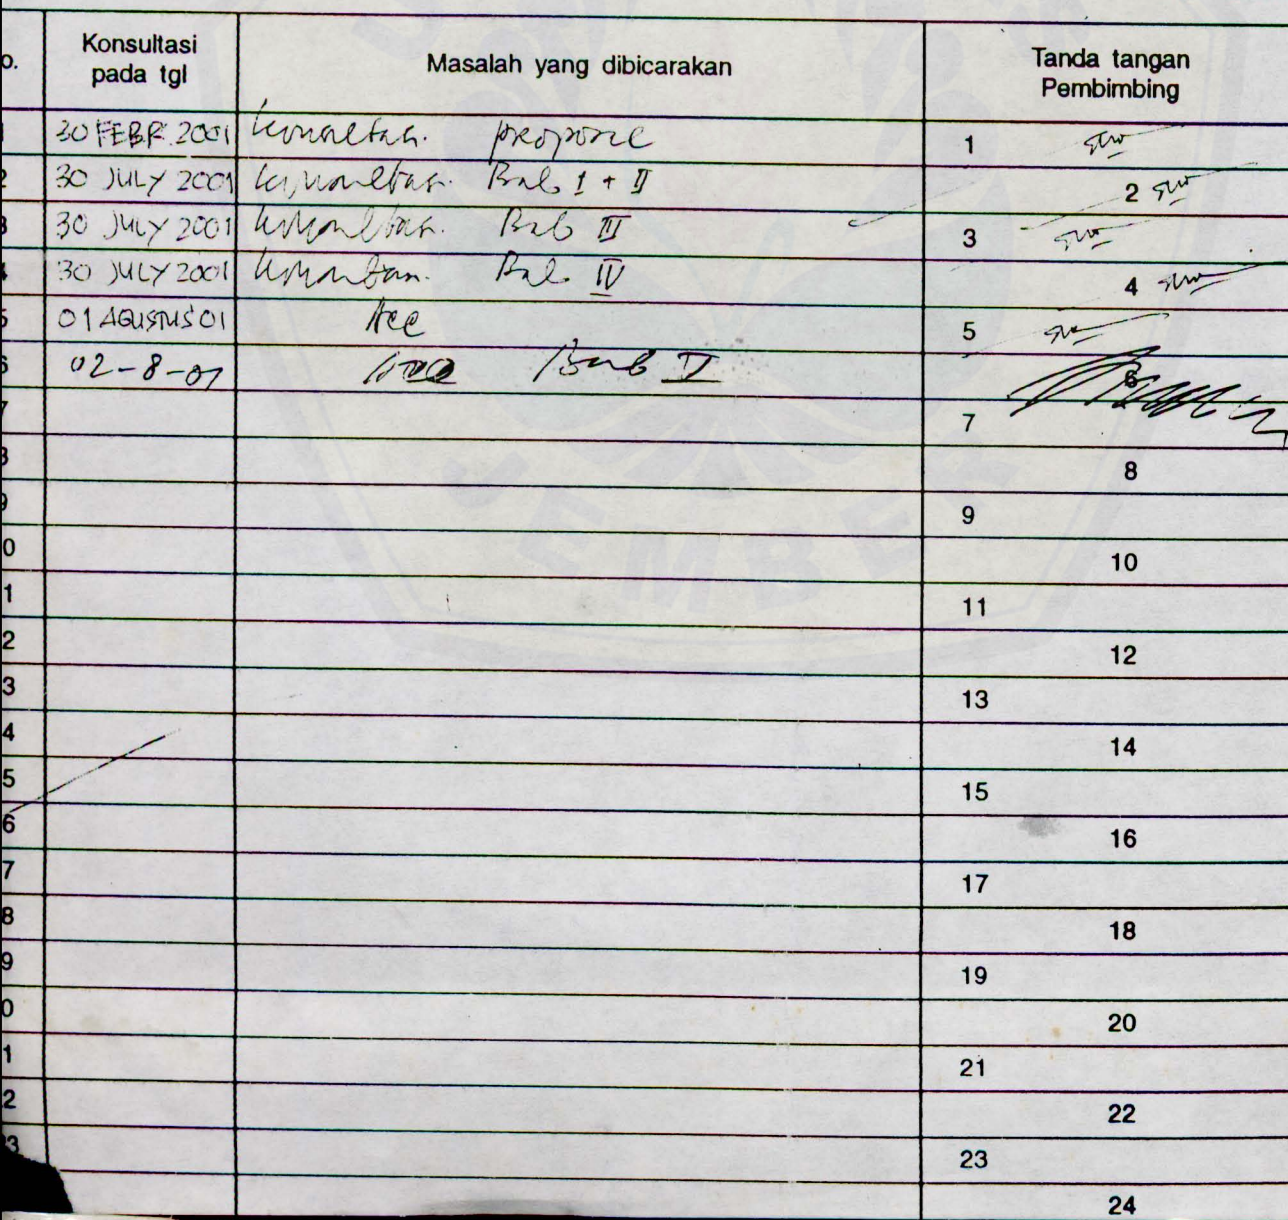 o. Konsultasi pada tgl Masalah yang dibicarakan Tanda tangan Pembimbing
30 FEBR. 2001 Konsultasi propose 1
2 30 JULY 2001 Konsultasi Bab I + II 2
3 30 JULY 2001 Konsultasi Bab III 3
4 30 JULY 2001 Konsultasi Bab IV 4
5 01 AGUSTUS 01 Acc 5
6 02-8-01 Bab I 6
7 7
8 8
9 9
0 10
1 11
2 12
3 13
4 14
5 15
6 16
7 17
8 18
9 19
0 20
1 21
2 22
3 23
24
JEMBER